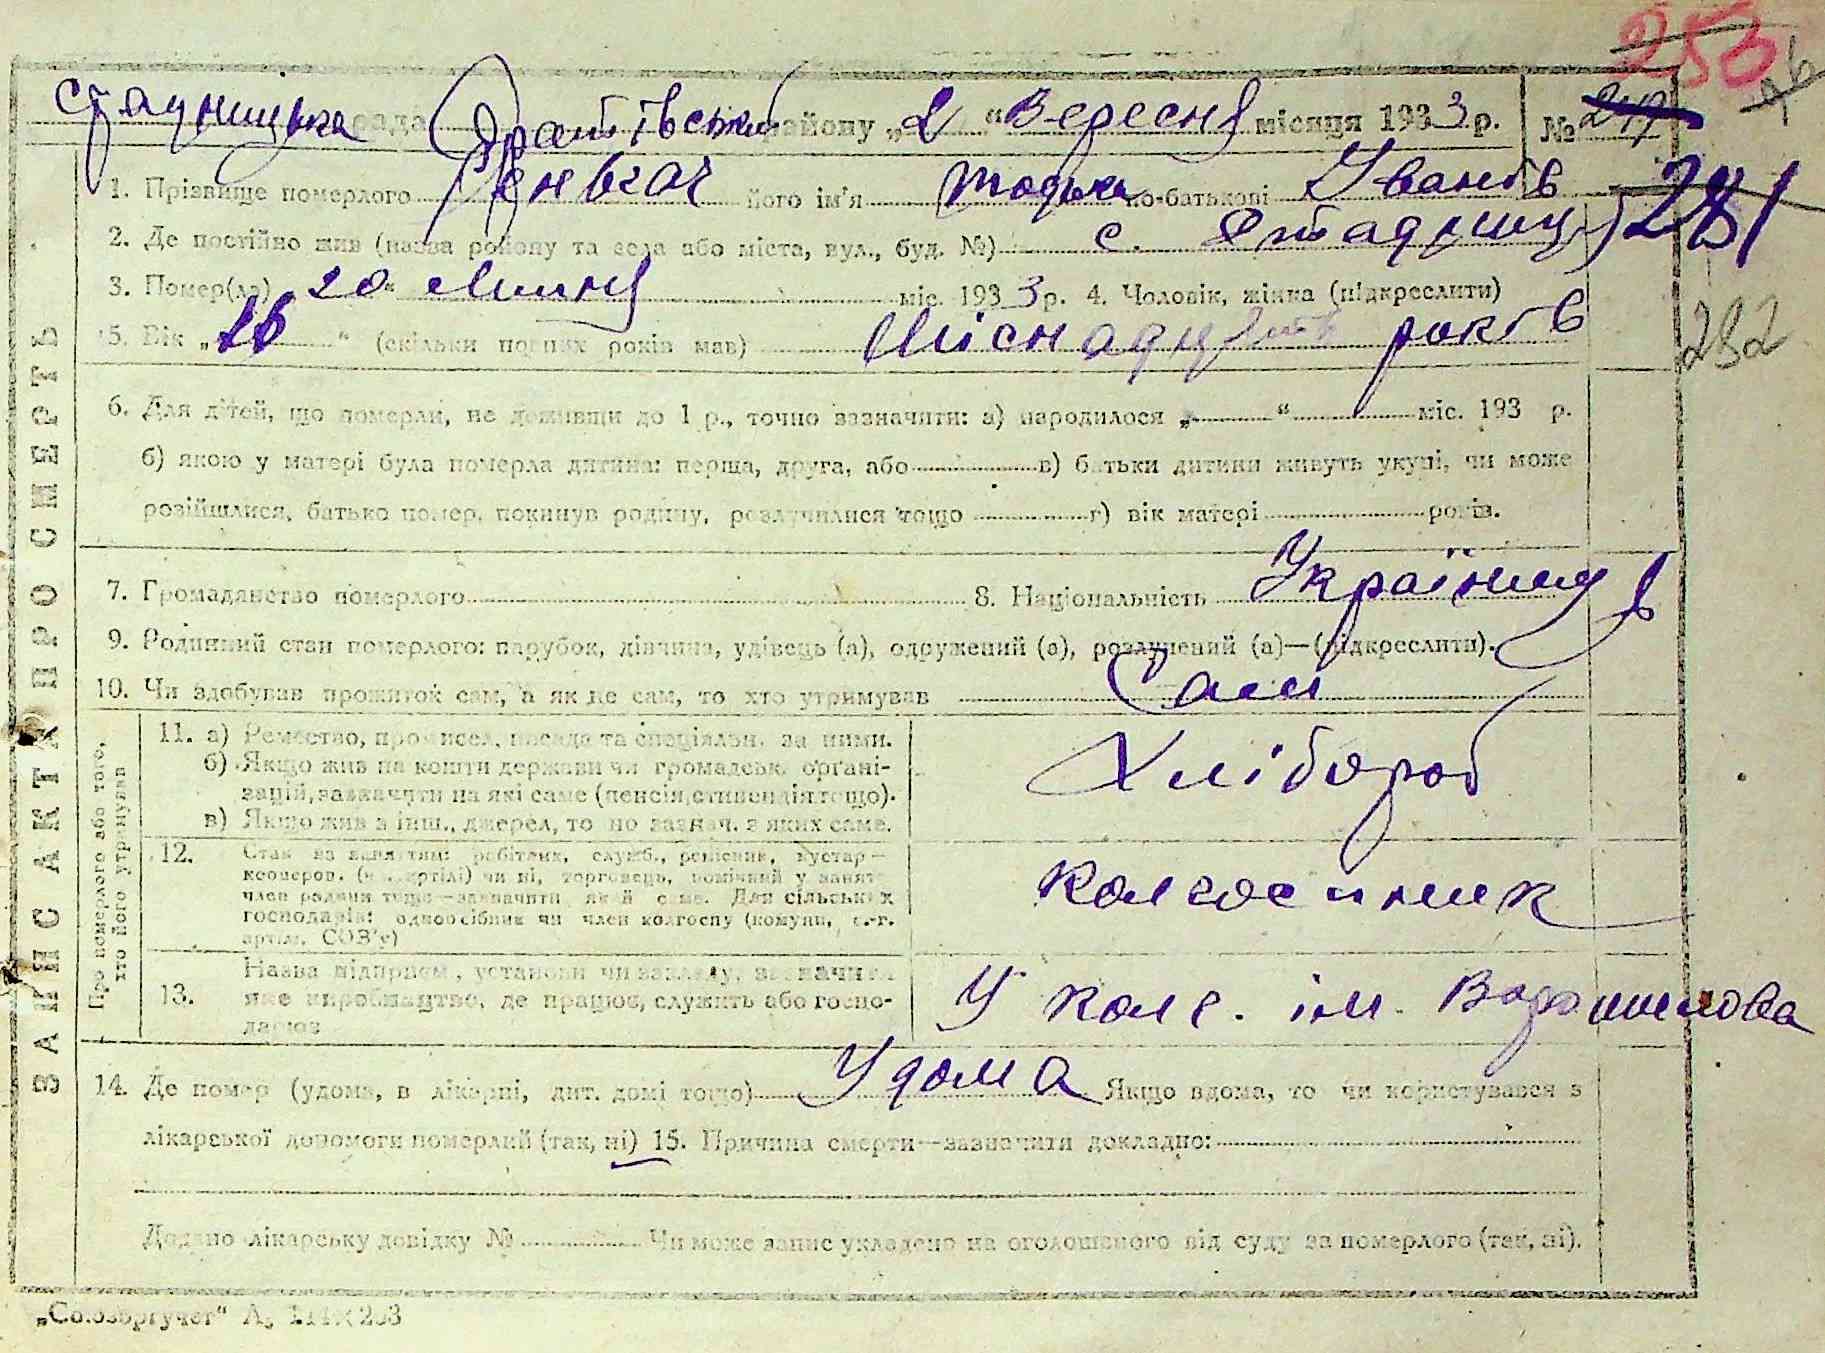 253
Стадницька рада Фратівський району „2“ Вересня місяця 1933 р. № 247
1. Прізвище померлого Сенькач його ім'я Тодька по-батькові Іванів 281
2. Де постійно жив (назва району та села або міста, вул., буд. №) с. Стадниця
3. Помер(ла) „20“ Липня міс. 1933 р. 4. Чоловік, жінка (підкреслити)
5. Вік „16“ (скільки повних років мав) Шіснадцять років
282
6. Для дітей, що померли, не доживши до 1 р., точно зазначити: а) народилося „ “ міс. 193 р.
б) якою у матері була померла дитина: перша, друга, або в) батьки дитини живуть укупі, чи може
розійшлися, батько помер, покинув родину, розлучилися тощо г) вік матері років.
7. Громадянство померлого 8. Національність Українец
9. Родинний стан померлого: парубок, дівчина, удівець (а), одружений (а), розлучений (а)—(підкреслити).
10. Чи здобував прожиток сам, а як не сам, то хто утримував Сам
ЗАПИС АКТА ПРО СМЕРТЬ
Про померлого або того,
хто його утримував
11. а) Ремество, промисел, посада та спеціяльн. за ними.
б) Якщо жив на кошти держави чи громадськ. органі-
зацій, зазначити на які саме (пенсія, стипендія тощо).
в) Якщо жив з інш., джерел, то по зазнач. з яких саме.
Хлібороб
12. Стан за заняттям: робітник, служб., ремісник, кустар—
кооперов. (в артілі) чи ні, торговець, помічний у занят.
член родини тощо—зазначити який саме. Для сільських
господарів: одноосібник чи член колгоспу (комуни, с.-г.
артіл. СОЗ'у)
колгоспник
13. Назва підприєм., установи чи закладу, зазначити
яке виробництво, де працює, служить або госпо-
дарює
У колг. ім. Ворошилова
14. Де помер (удома, в лікарні, дит. домі тощо) Удома Якщо вдома, то чи користувався з
лікарської допомоги померлий (так, ні) 15. Причина смерти—зазначити докладно:
Додано лікарську довідку № Чи може запис укладено на оголошеного від суду за померлого (так, ні).
„Союзоргучет“